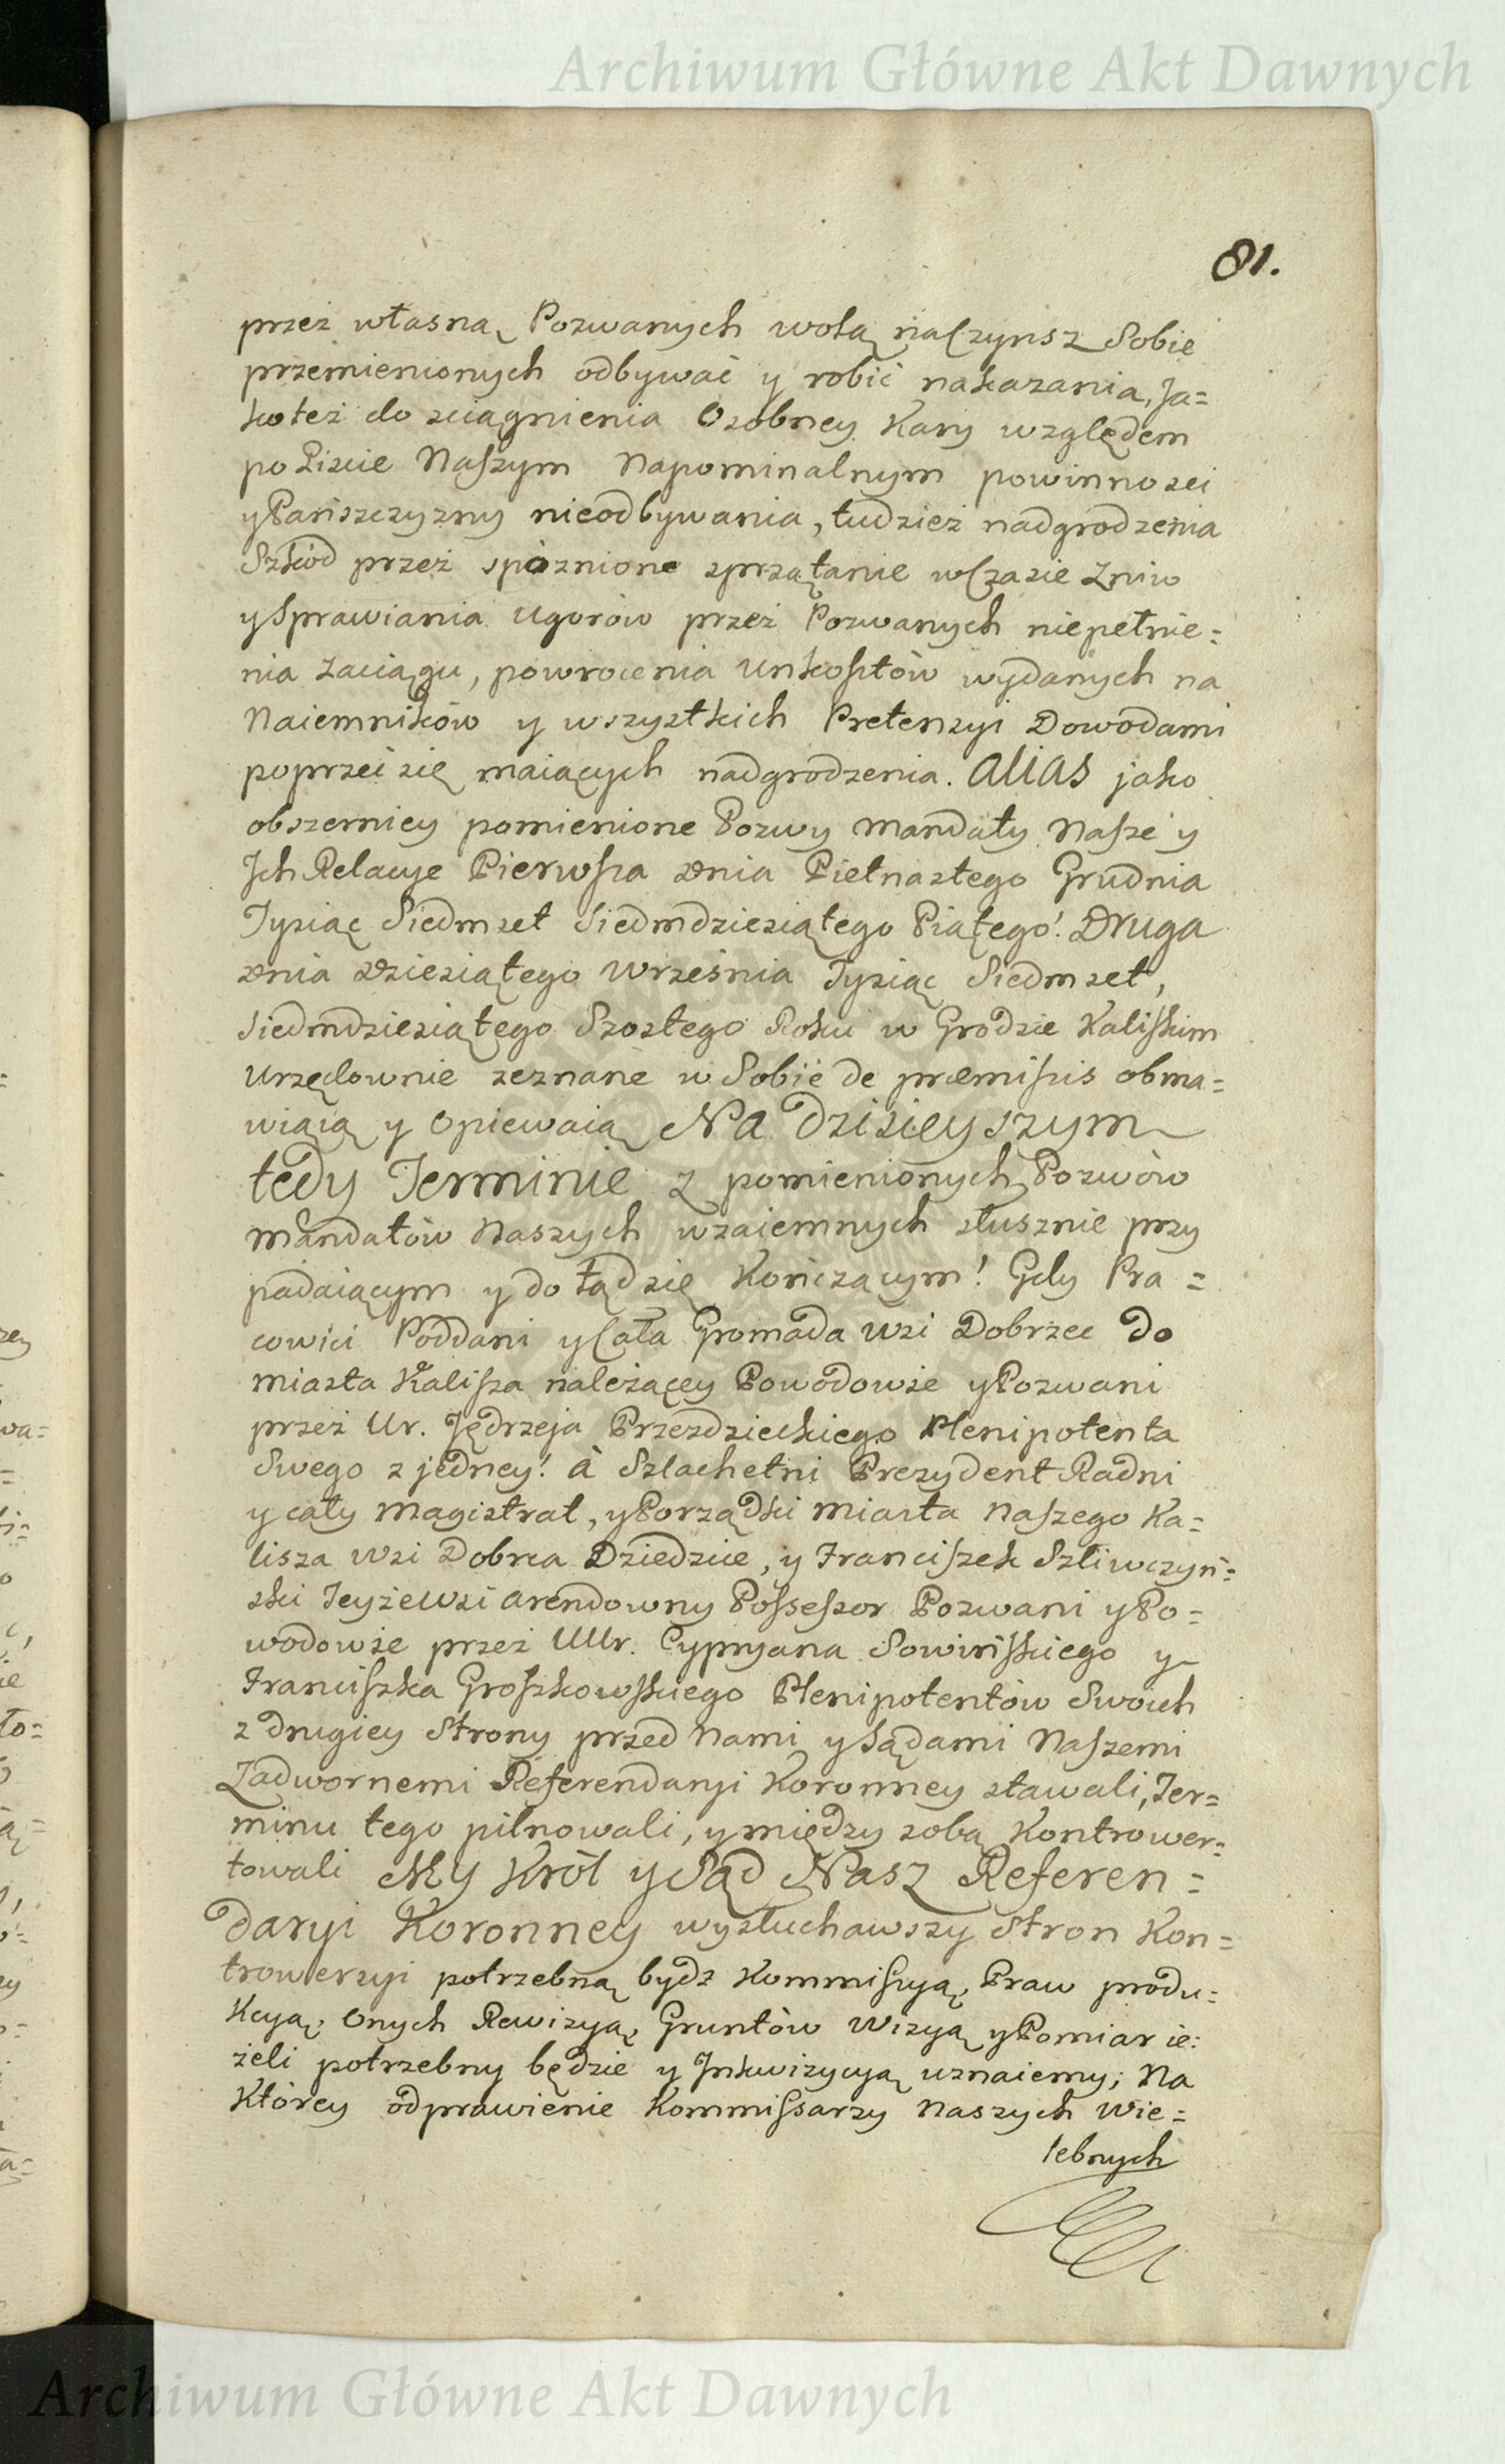 Archiwum Główne Akt Dawnych
81.
przez własną Pozwanych wolą na Czynsz Sobie
przemienionych odbywać y robić nakazania, Ja=
ko też do sciągnienia Osobney Kary względem
po Liscie Naszym Napominalnym powinnosci
y Pańszczyzny nieodbywania, tudzież nadgrodzenia
Szkód przez spóznione sprzątanie w Czasie Zniw
y Sprawiania Ugorów przez Pozwanych niepełnie=
nia Zaciągu, powrocenia Unkosztów wydanych na
Naiemników y wszystkich Pretensyi Dowodami
poprzeć się maiących nadgrodzenia. Alias jako
obszerniey pomienione Pozwy Mandaty Nasze y
Jch Relacye Pierwsza Dnia Pietnastego Grudnia
Tysiąc Siedmset Siedmdziesiątego Piątego! Druga
Dnia Dziesiątego Września Tysiąc Siedmset,
Siedmdziesiątego Szostego Roku w Grodzie Kaliskim
Urzędownie zeznane w Sobie de præmissis obma=
wiaią y Opiewaią Na Dzisieyszym
tedy Terminie z pomienionych Pozwów
Mandatów Naszych wzaiemnych słusznie przy
padaiącym y do tąd się Kończącym! Gdy Pra=
cowici Poddani y Cała Gromada Wsi Dobrzec Do
miasta Kalisza należącey Powodowie y Pozwani
przez Ur. Jędrzeja Przezdzieckiego Plenipotenta
Swego z jedney! à Szlachetni Prezydent Radni
y cały Magistrat, y Porządki Miasta Naszego Ka=
lisza Wsi Dobrca Dziedzice, y Franciszek Szliwczyń=
ski Teyże Wsi Arendowny Possessor Pozwani y Po=
wodowie przez UUr. Cypryana Sowińskiego y
Franciszka Groszkowskiego Plenipotentów Swoich
z drugiey Strony przed Nami y Sądami Naszemi
Zadwornemi Referendaryi Koronney stawali, Ter=
minu tego pilnowali, y między sobą Kontrower=
towali My Król y Sąd Nasz Referen=
daryi Koronney wysłuchawszy Stron Kon=
trowersyi potrzebną bydz Kommissyą, Praw produ=
Kcyą, Onych Rewizyą, Gruntów Wizyą y Pomiar ie=
żeli potrzebny będzie y Jnkwizycyą uznaiemy; Na
Którey odprawienie Kommissarzy Naszych Wie=
lebnych
Archiwum Główne Akt Dawnych